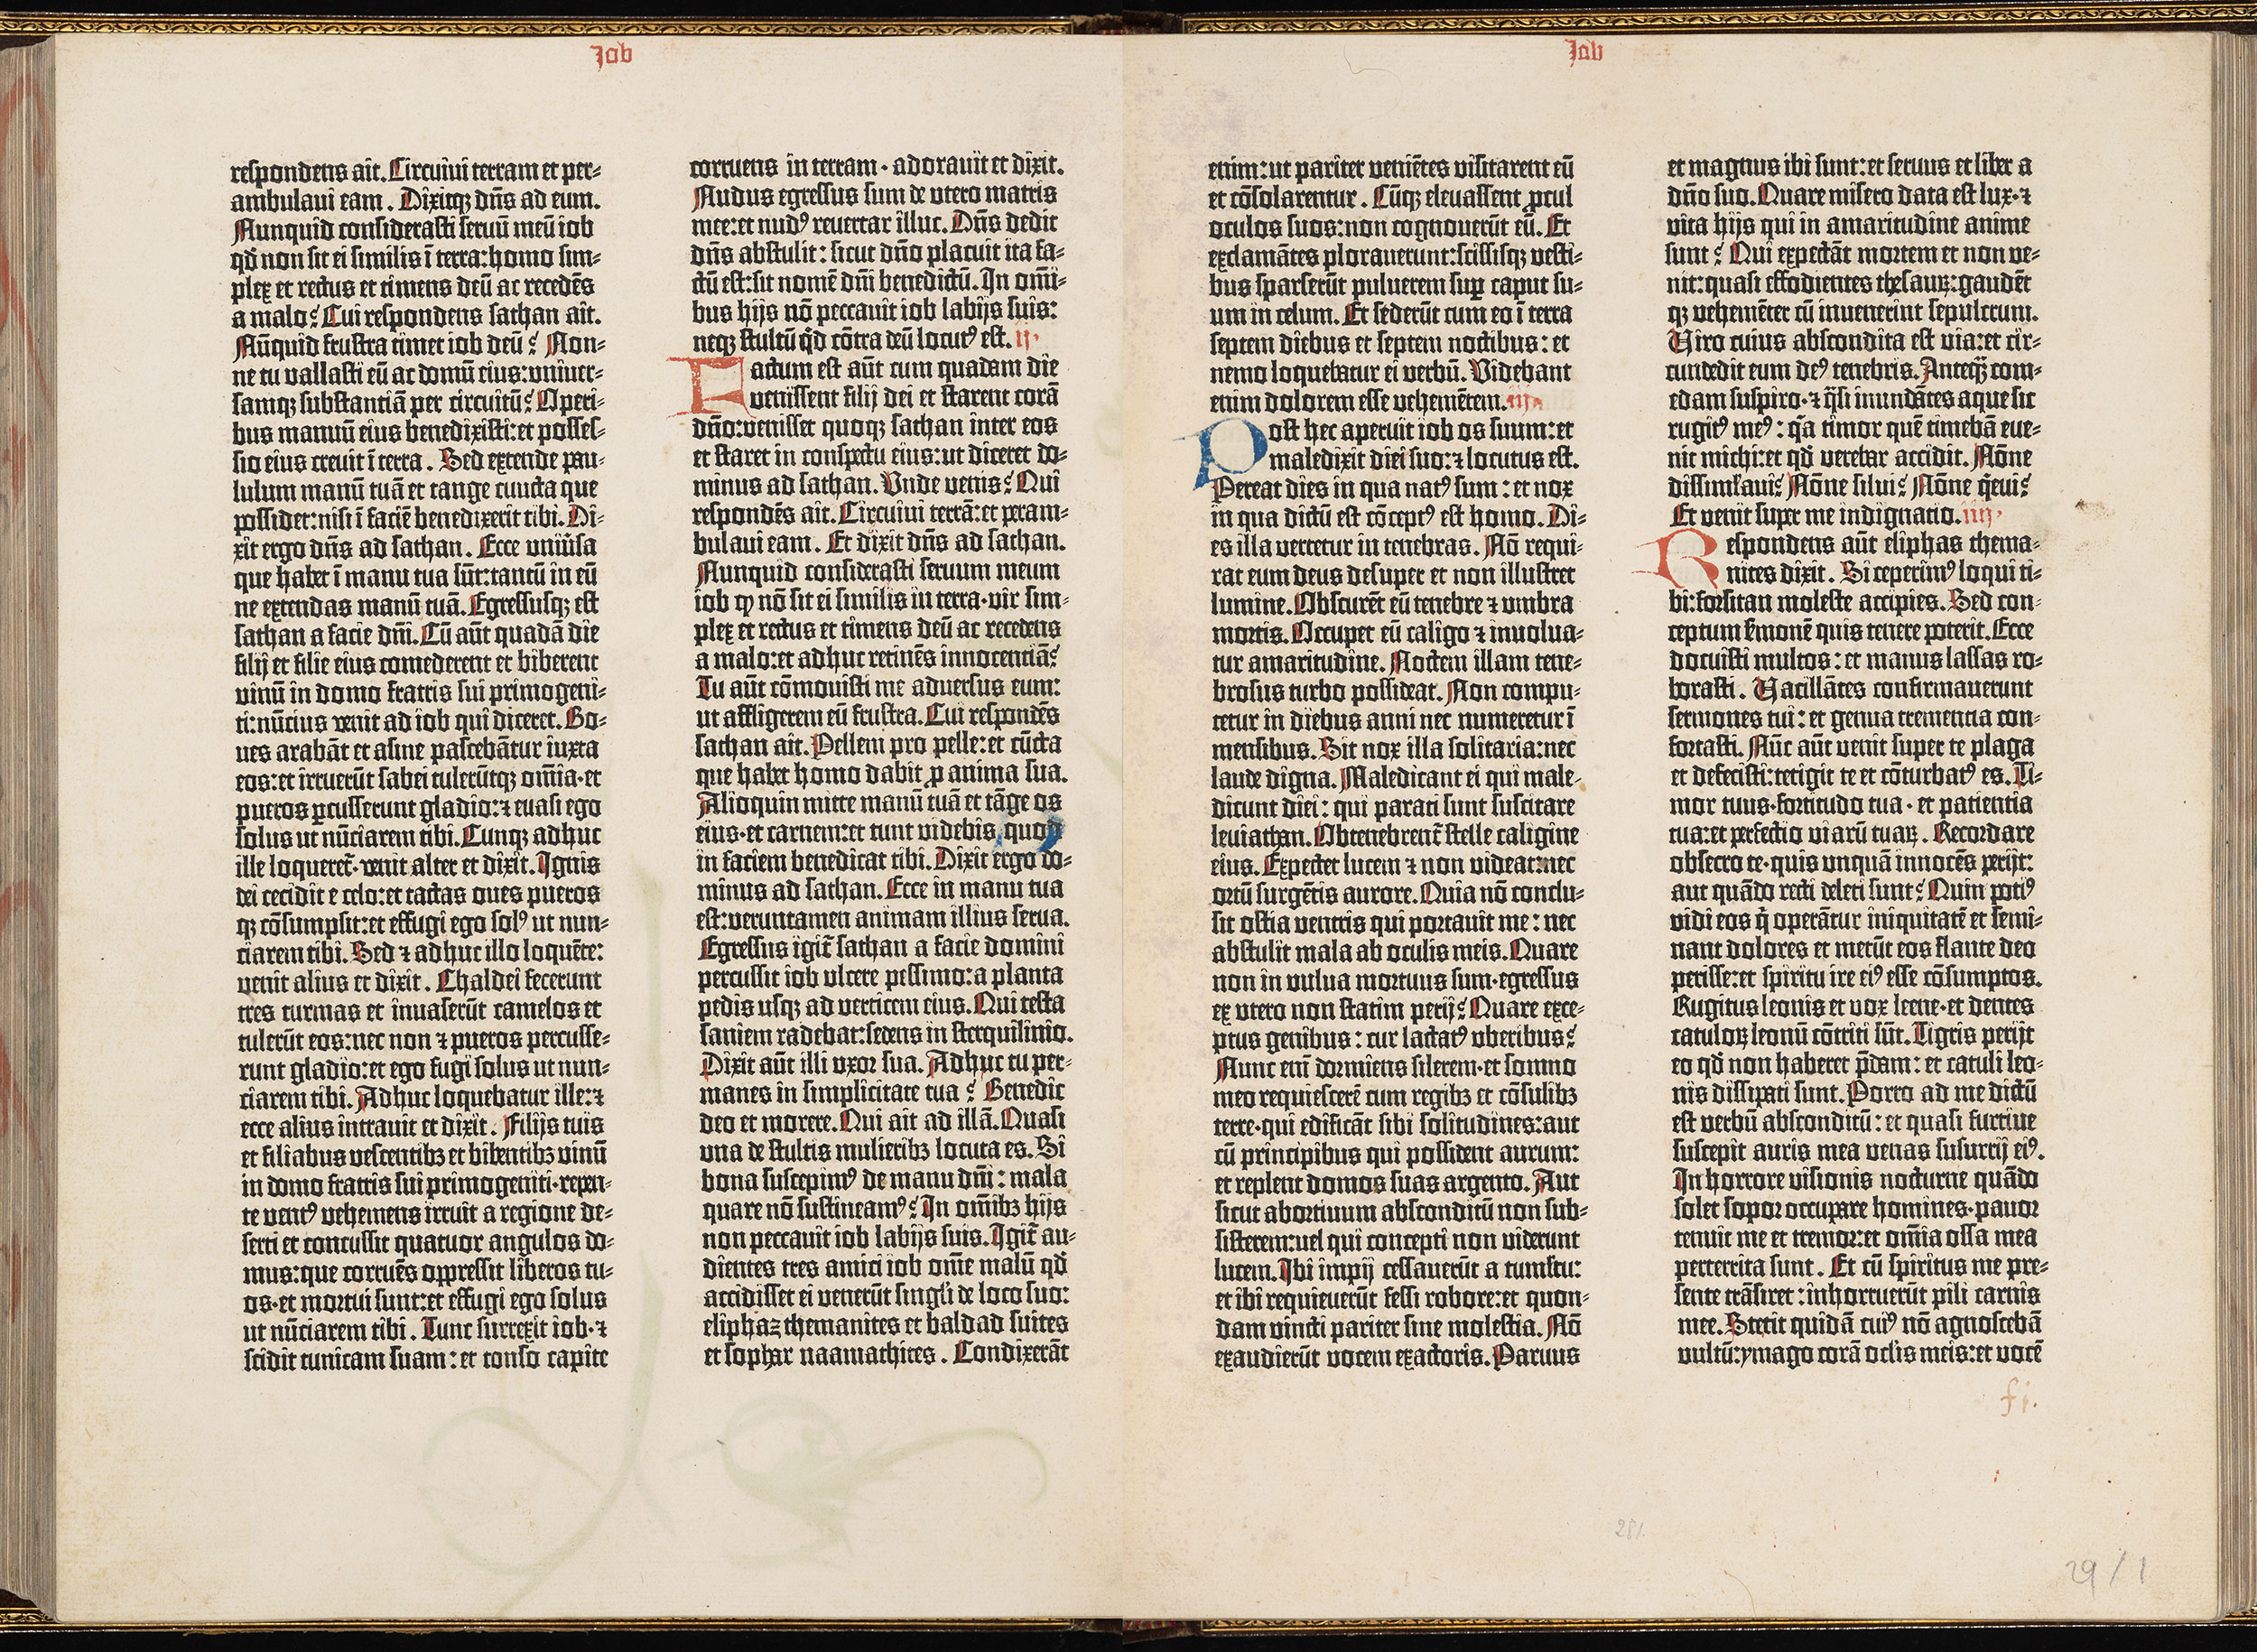 Job
respondens ait. Circuiui terram et per-
ambulaui eam. Dixitqꝫ dn̄s ad eum.
Nunquid considerasti seruū meū iob
qđ non sit ei similis ī terra: homo sim-
plex et rectus et timens deū ac recedēs
a malo? Cui respondens sathan ait.
Nūquid frustra timet iob deū? Non-
ne tu vallasti eū ac domū eius: vniuer-
samqꝫ substantiā per circuitū? Operi-
bus manuū eius benedixisti: et posses-
sio eius creuit ī terra. Sed extende pau-
lulum manū tuā et tange cuncta que
possidet: nisi ī faciē benedixerit tibi. Di-
xit ergo dn̄s ad sathan. Ecce vniūsa
que habet ī manu tua sūt: tantū in eū
ne extendas manū tuā. Egressusqꝫ est
sathan a facie dn̄i. Cū aūt quadā die
filij et filie eius comederent et biberent
vinū in domo fratris sui primogeni-
ti: nūcius venit ad iob qui diceret. Bo-
ues arabāt et asine pascebātur iuxta
eos: et irruerūt sabei tulerūtqꝫ om̄ia· et
pueros ꝑcusserunt gladio: ⁊ euasi ego
solus ut nūciarem tibi. Cunqꝫ adhuc
ille loqueret᷑· venit alter et dixit. Ignis
dei cecidit e celo: et tactas oues pueros
qꝫ cōsumpsit: et effugi ego solꝰ ut nun-
ciarem tibi. Sed ⁊ adhuc illo loquēte:
venit alius et dixit. Chaldei fecerunt
tres turmas et inuaserūt camelos et
tulerūt eos: nec non ⁊ pueros percusse-
runt gladio: et ego fugi solus ut nun-
ciarem tibi. Adhuc loquebatur ille: ⁊
ecce alius intrauit et dixit. Filijs tuis
et filiabus vescentibꝫ et bibentibꝫ vinū
in domo fratris sui primogeniti· repen-
te ventꝰ vehemens irruit a regione de-
serti et concussit quatuor angulos do-
mus: que corruēs oppressit liberos tu-
os· et mortui sunt: et effugi ego solus
ut nūciarem tibi. Tunc surrexit iob· ⁊
scidit tunicam suam: et tonso capite
corruens in terram· adorauit et dixit.
Nudus egressus sum de vtero matris
mee: et nudꝰ reuertar illuc. Dn̄s dedit
dn̄s abstulit: sicut dn̄o placuit ita fa-
ctū est: sit nomē dn̄i benedictū. In om̄i-
bus hijs nō peccauit iob labijs suis:
neqꝫ stultū qͥd cōtra deū locutꝰ est. ij·
Factum est aūt cum quadam die
venissent filij dei et starent corā
dn̄o: venisset quoqꝫ sathan inter eos
et staret in conspectu eius: ut diceret do-
minus ad sathan. Vnde venis? Qui
respondēs ait. Circuiui terrā: et peram-
bulaui eam. Et dixit dn̄s ad sathan.
Nunquid considerasti seruum meum
iob ꝙ nō sit ei similis in terra· vir sim-
plex et rectus et timens deū ac recedens
a malo: et adhuc retinēs innocentiā?
Tu aūt cōmouisti me aduersus eum:
ut affligerem eū frustra. Cui respondēs
sathan ait. Pellem pro pelle: et cūcta
que habet homo dabit ꝓ anima sua.
Alioquin mitte manū tuā et tāge os
eius· et carnem: et tunc videbis quod
in faciem benedicat tibi. Dixit ergo do-
minus ad sathan. Ecce in manu tua
est: veruntamen animam illius serua.
Egressus igit᷑ sathan a facie domini
percussit iob vlcere pessimo: a planta
pedis usqꝫ ad verticem eius. Qui testa
saniem radebat: sedens in sterquilinio.
Dixit aūt illi vxor sua. Adhuc tu per-
manes in simplicitate tua? Benedic
deo et morere. Qui ait ad illā. Quasi
vna de stultis mulieribꝫ locuta es. Si
bona suscepimꝰ de manu dn̄i: mala
quare nō sustineamꝰ? In om̄ibꝫ hijs
non peccauit iob labijs suis. Igit᷑ au-
dientes tres amici iob om̄e malū qđ
accidisset ei venerūt singl̓i de loco suo:
eliphaz themanites et baldad suites
et sophar naamathites. Condixerāt
Job
enim: ut pariter veniētes visitarent eū
et cōsolarentur. Cūqꝫ eleuassent ꝓcul
oculos suos: non cognouerūt eū. Et
exclamātes plorauerunt: scissisqꝫ vesti-
bus sparserūt puluerem suꝑ caput su-
um in celum. Et sederūt cum eo ī terra
septem diebus et septem noctibus: et
nemo loquebatur ei verbū. Videbant
enim dolorem esse vehemētem. iij·
Post hec aperuit iob os suum: et
maledixit diei suo: ⁊ locutus est.
Pereat dies in qua natꝰ sum: et nox
in qua dictū est cōceptꝰ est homo. Di-
es illa vertetur in tenebras. Nō requi-
rat eum deus desuper et non illustret
lumine. Obscurēt eū tenebre ⁊ vmbra
mortis. Occupet eū caligo ⁊ inuolua-
tur amaritudine. Noctem illam tene-
brosus turbo possideat. Non compu-
tetur in diebus anni nec numeretur ī
mensibus. Sit nox illa solitaria: nec
laude digna. Maledicant ei qui male-
dicunt diei: qui parati sunt suscitare
leuiathan. Obtenebrent᷑ stelle caligine
eius. Expectet lucem ⁊ non videat: nec
ortū surgētis aurore. Quia nō conclu-
sit ostia ventris qui portauit me: nec
abstulit mala ab oculis meis. Quare
non in vulua mortuus sum· egressus
ex vtero non statim perij? Quare exce-
ptus genibus: cur lactatꝰ vberibus?
Nunc em̄ dormiens silerem· et somno
meo requiescerē cum regibꝫ et cōsulibꝫ
terre· qui edificāt sibi solitudines: aut
cū principibus qui possident aurum:
et replent domos suas argento. Aut
sicut abortiuum absconditū non sub-
sisterem: vel qui concepti non viderunt
lucem. Ibi impij cessauerūt a tumltu:
et ibi requieuerūt fessi robore: et quon-
dam vincti pariter sine molestia. Nō
exaudierūt vocem exactoris. Paruus
et magnus ibi sunt: et seruus et liber a
dn̄o suo. Quare misero data est lux· ⁊
vita hijs qui in amaritudine anime
sunt? Qui expectāt mortem et non ve-
nit: quasi effodientes thesaurꝫ: gaudēt
qꝫ vehemēter cū inuenerint sepulcrum.
Viro cuius abscondita est via: et cir-
cundedit eum deꝰ tenebris. Anteqᷓꝫ com-
edam suspiro· ⁊ qᷓsi inundātes aque sic
rugitꝰ meꝰ: qᷓa timor quē timebā eue-
nit michi: et qđ verebar accidit. Nōne
dissimt̓aui? Nōne silui? Nōne qͥeui?
Et venit super me indignatio. iiij·
Respondens aūt eliphas thema-
nites dixit. Si ceperimꝰ loqui ti-
bi: forsitan moleste accipies. Sed con-
ceptum s̄monē quis tenere poterit. Ecce
docuisti multos: et manus lassas ro-
borasti. Vacillātes confirmauerunt
sermones tui: et genua trementia con-
fortasti. Nūc aūt venit super te plaga
et defecisti: tetigit te et cōturbatꝰ es. Ti-
mor tuus· fortitudo tua· et patientia
tua: et perfectio viarū tuaꝝ. Recordare
obsecro te· quis vnquā innocēs perijt:
aut quādo recti deleti sunt? Quin potiꝰ
vidi eos qͥ operātur iniquitatē et semi-
nant dolores et metūt eos flante deo
perisse: et spiritu ire eiꝰ esse cōsumptos.
Rugitus leonis et vox leene· et dentes
catuloꝝ leonū cōtriti sūt. Tigris perijt
eo qđ non haberet p̄dam: et catuli leo-
nis dissipati sunt. Porro ad me dictū
est verbū absconditū: et quasi furtiue
suscepit auris mea venas susurrij eiꝰ.
In horrore visionis nocturne quādo
solet sopor occupare homines· pauor
tenuit me et tremor: et om̄ia ossa mea
perterrita sunt. Et cū spiritus me pre-
sente trāsiret: inhorruerūt pili carnis
mee. Stetit quidā cuiꝰ nō agnoscebā
vultū: ymago corā oclis meis: et vocē
fi.
281.
29/1